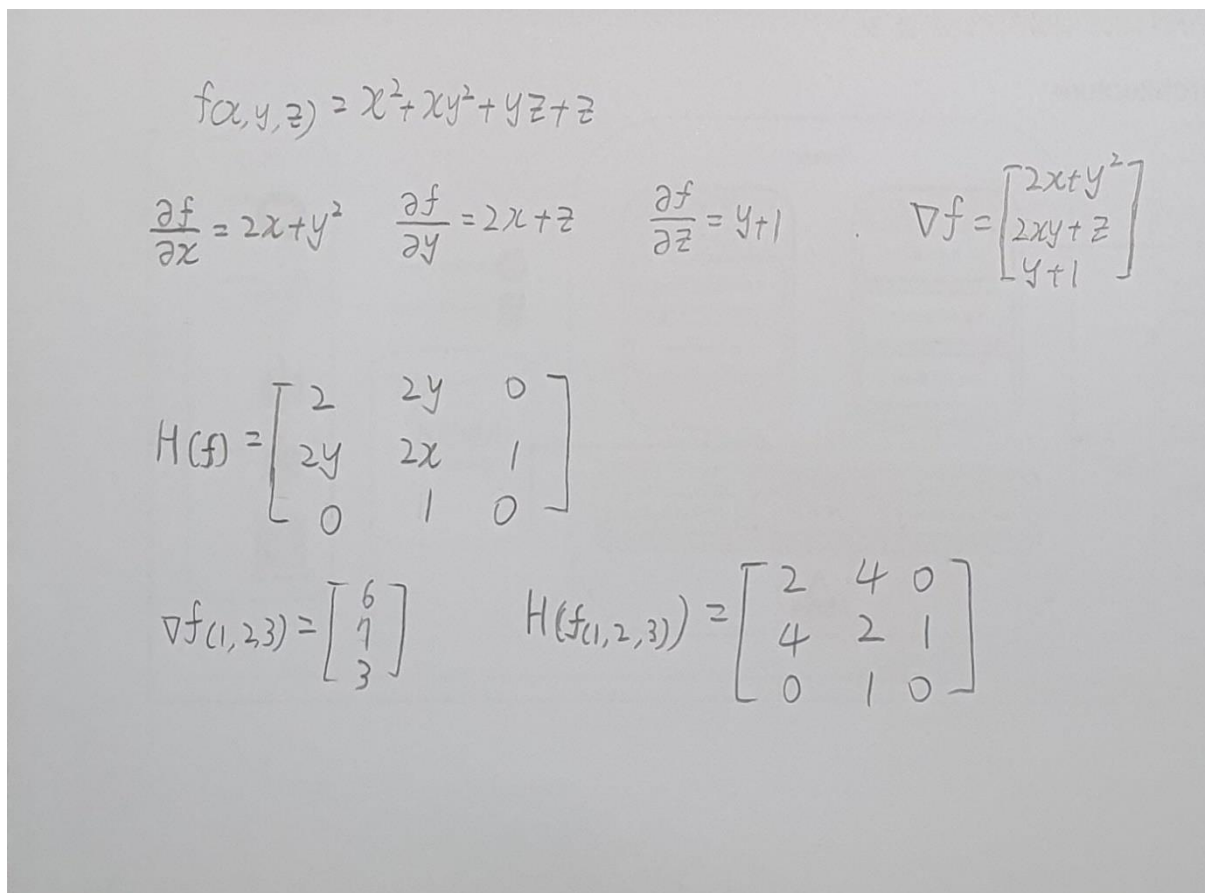 f(x,y,z) = x²+xy²+yz+z
∂f/∂x = 2x+y² ∂f/∂y = 2x+z ∂f/∂z = y+1 ∇f = [2x+y²; 2xy+z; y+1]
H(f) = [2 2y 0; 2y 2x 1; 0 1 0]
∇f(1,2,3) = [6; 7; 3] H(f(1,2,3)) = [2 4 0; 4 2 1; 0 1 0]